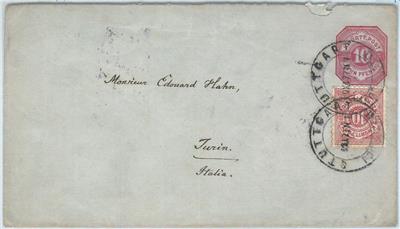 10
Monsieur Edouard Hahn,
Turin.
Italia.
STUTTGART
STUTTGART
10